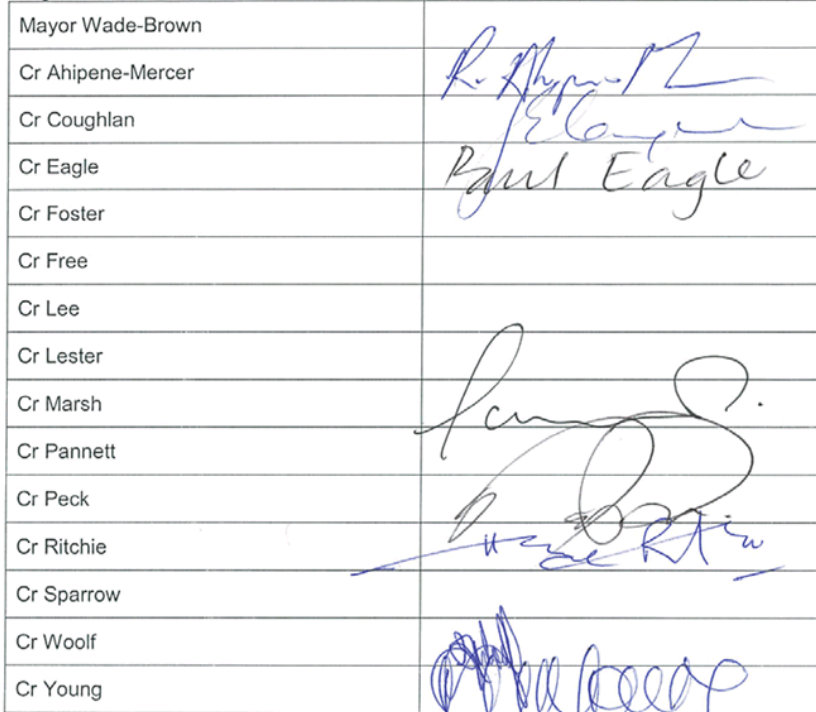 Mayor Wade-Brown
Cr Ahipene-Mercer
Cr Coughlan
Cr Eagle Paul Eagle
Cr Foster
Cr Free
Cr Lee
Cr Lester
Cr Marsh
Cr Pannett
Cr Peck
Cr Ritchie
Cr Sparrow
Cr Woolf
Cr Young